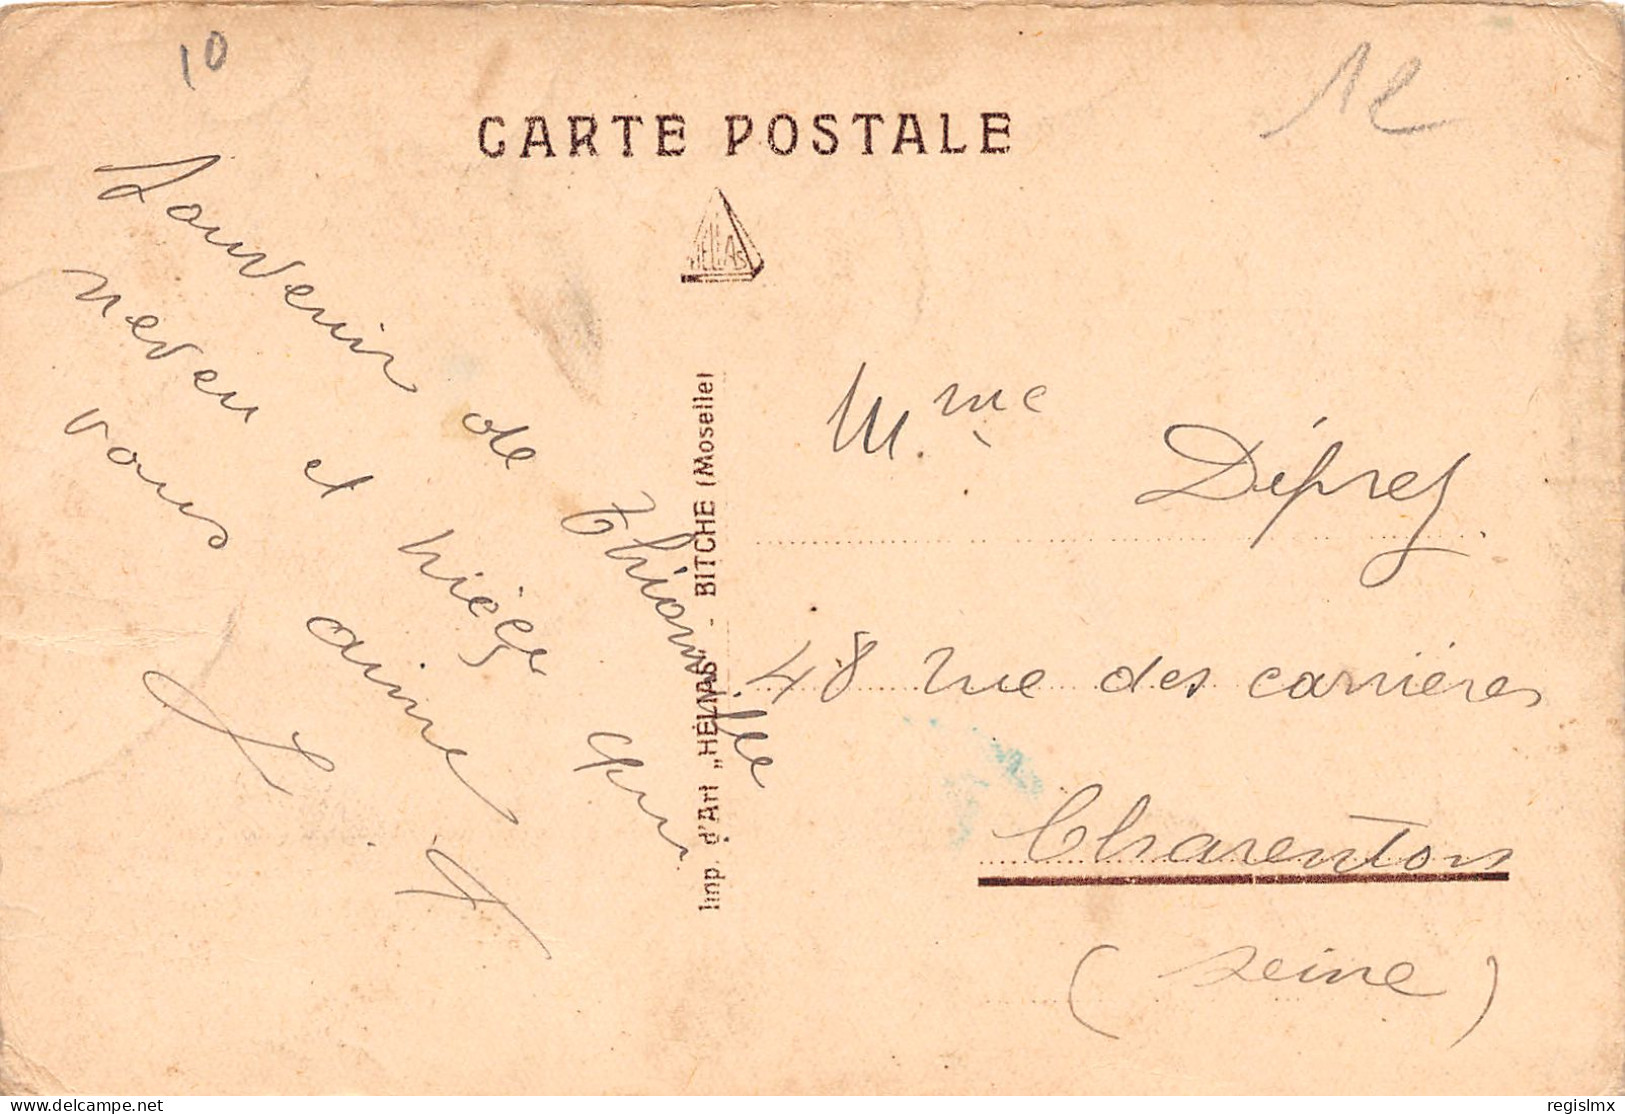 10
1e
CARTE POSTALE
HELIAS
Souvenir de Thionville
neveu et nièce qui
vous aime
Imp. d'Art „HELIAS" - BITCHE (Moselle)
Mme Déprez
48 rue des carrières
Charenton
(Seine)
delcampe.net
regislmx